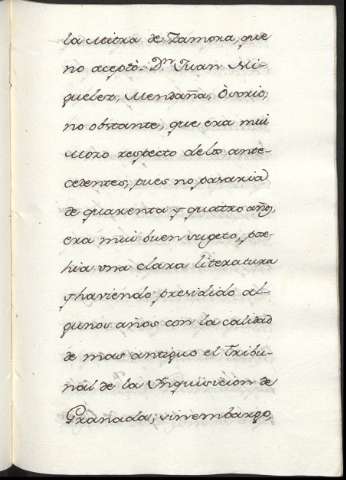 la Mitra de Zamora, que
no aceptò. Dⁿ Juan Mi-
guelez, Mendaña, Osorio,
no obstante, que era mui
Mozo respecto de los ante-
cedentes; pues no pasaria
de quarenta y quatro años,
era mui buen sugeto, po-
hia una clara literatura
y haviendo presidido al-
gunos años con la calidad
de mas antiguo el Tribu-
nal de la Inquisicion de
Granada; sin embargo,